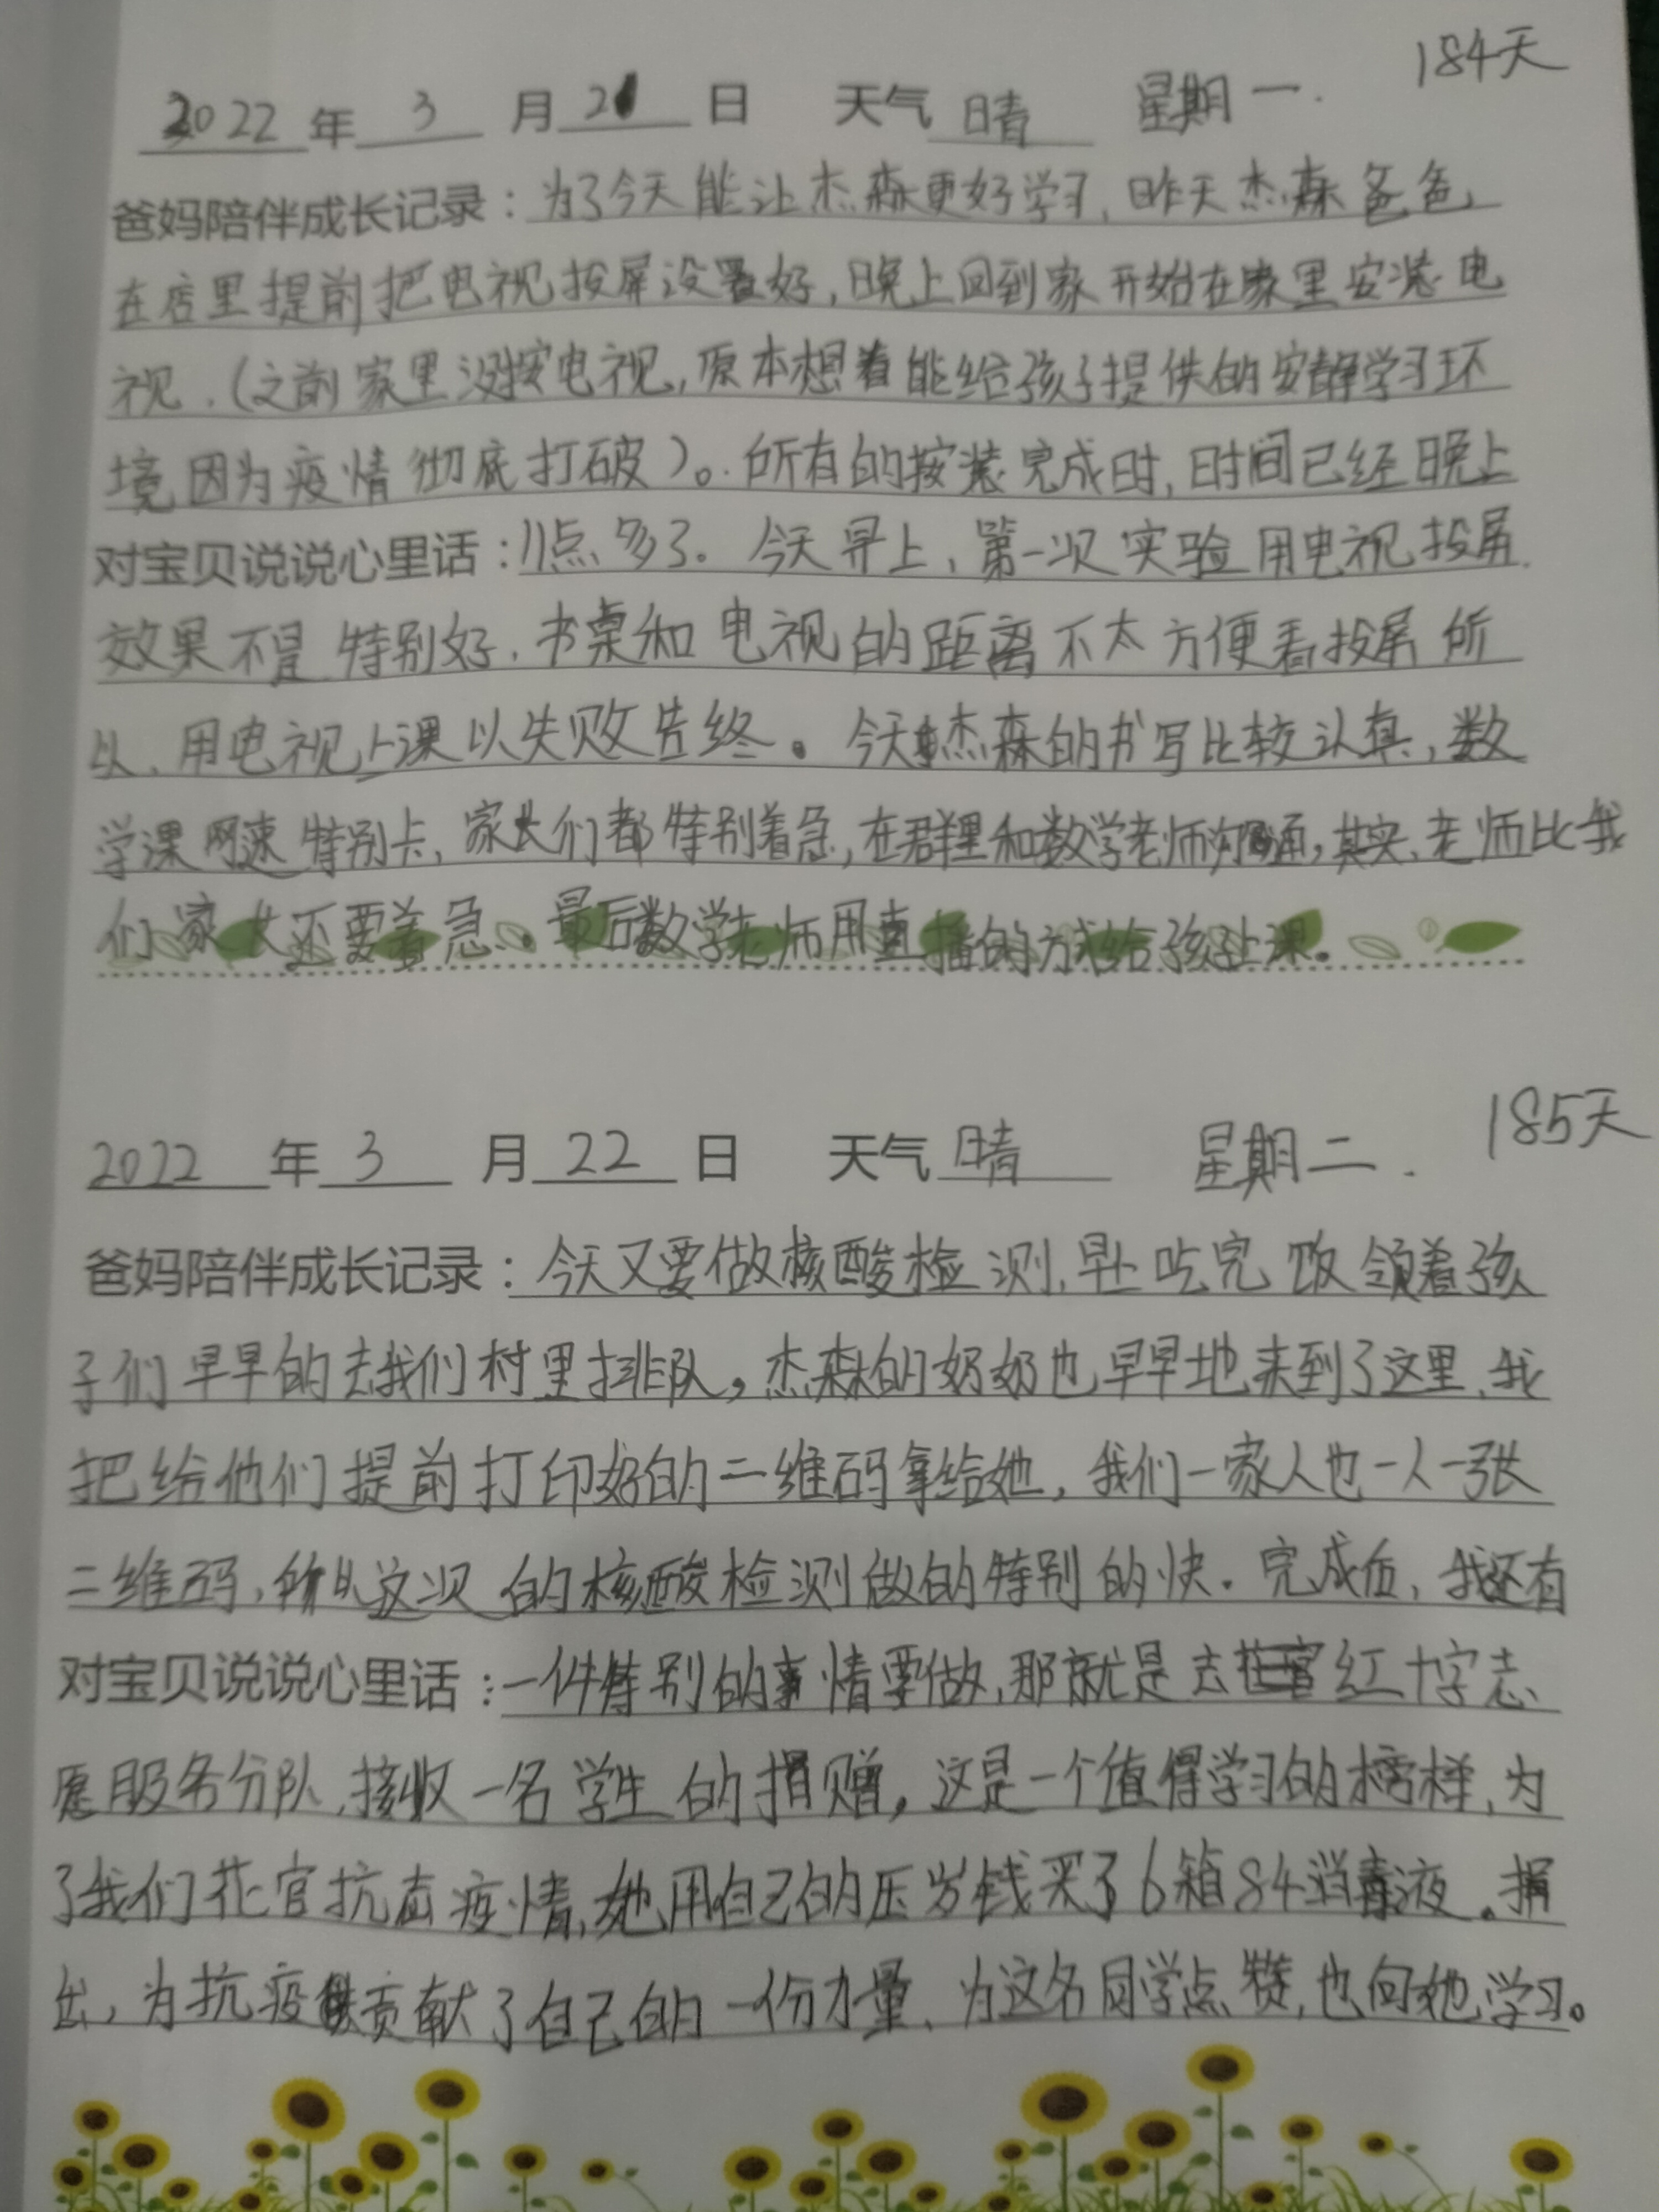 184天
2022年 3 月 21 日 天气 晴 星期一.
爸妈陪伴成长记录：为了今天能让杰森更好学习，昨天杰森爸爸
在店里提前把电视投屏设置好，晚上回到家开始在家里安装电
视.（之前家里没按电视，原本想着能给孩子提供的安静学习环
境因为疫情彻底打破）。所有的按装完成时，时间已经晚上
对宝贝说说心里话：11点多了。今天早上，第一次实验用电视投屏.
效果不是特别好，书桌和电视的距离不太方便看投屏所
以、用电视上课以失败告终。今天杰森的书写比较认真，数
学课网速特别卡，家长们都特别着急，在群里和数学老师沟通，其实、老师比我
们家长还要着急.最后数学老师用直播的方式给孩子上课。
185天
2022 年 3 月 22 日 天气 晴 星期二.
爸妈陪伴成长记录：今天又要做核酸检测，早上吃完饭领着孩
子们早早的去我们村里排队，杰森的奶奶也早早地来到了这里、我
把给他们提前打印好的二维码拿给她，我们一家人也一人一张
二维码，所以这次的核酸检测做的特别的快.完成后，我还有
对宝贝说说心里话：一件特别的事情要做，那就是去花官红十字志
愿服务分队、接收一名学生的捐赠，这是一个值得学习的榜样，为
了我们花官抗击疫情，她用自己的压岁钱买了6箱84消毒液。捐
出，为抗疫贡献了自己的一份力量、为这名同学点赞，也向她学习。